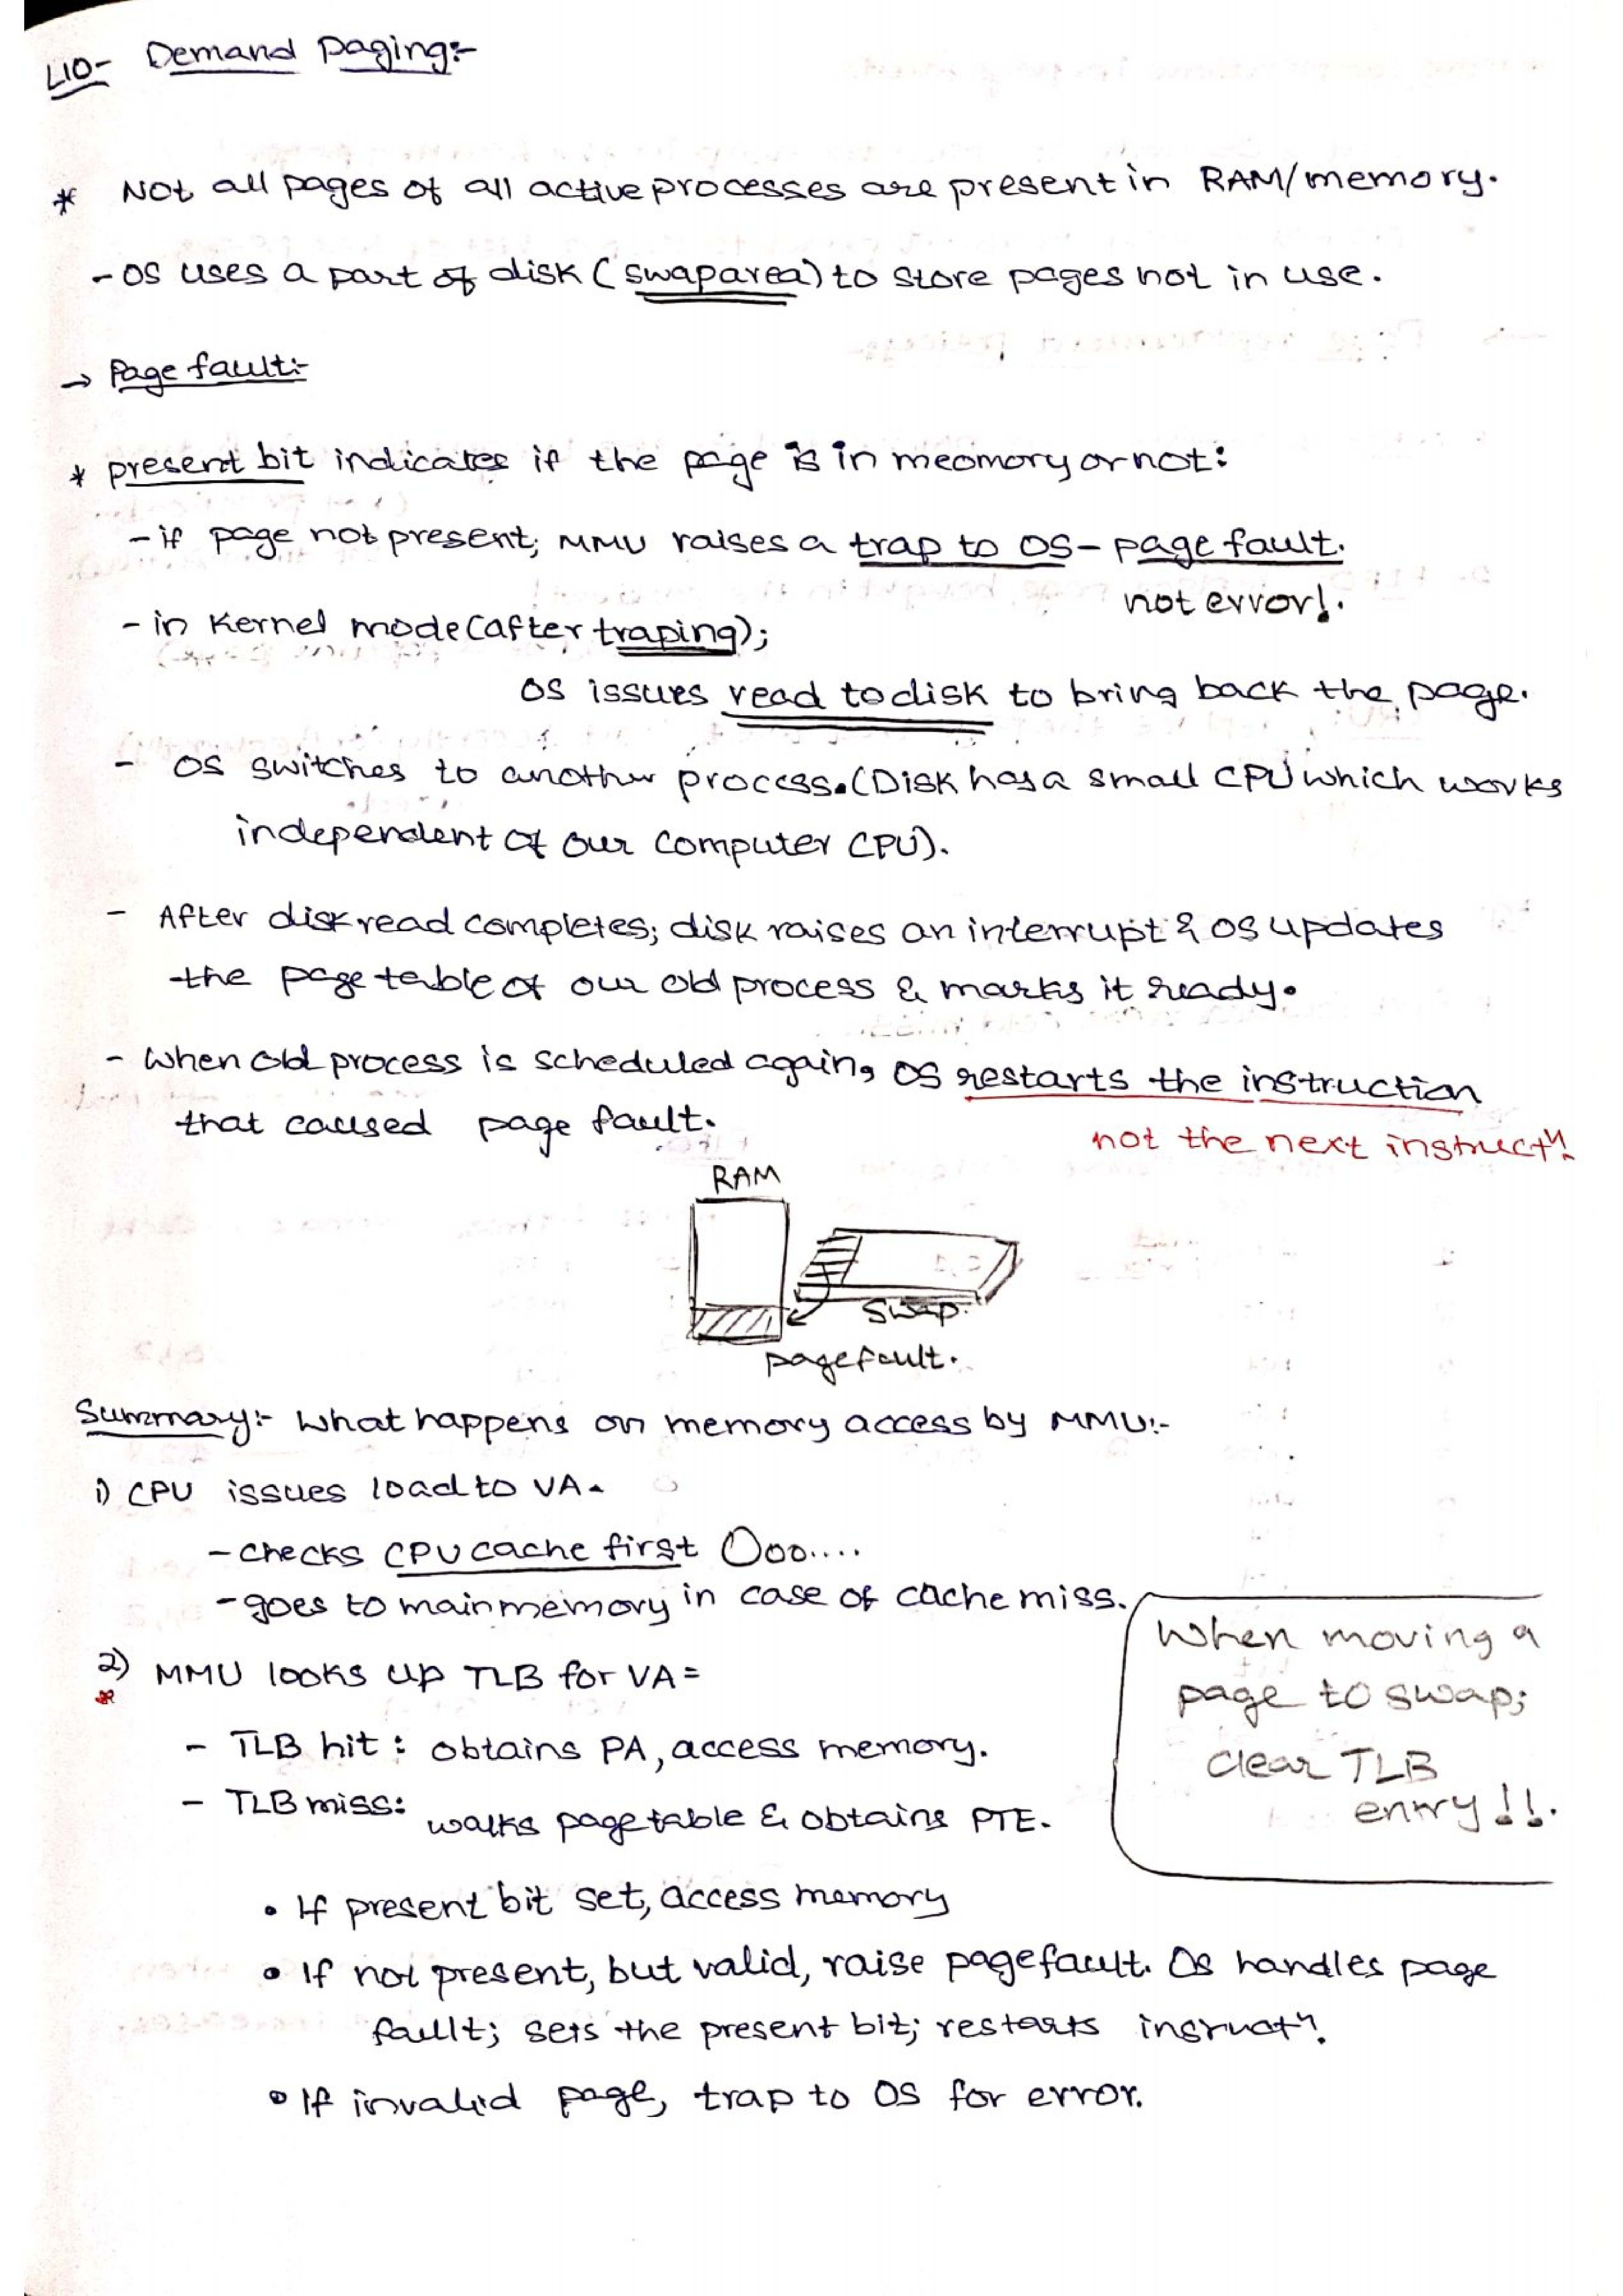 L10- Demand Paging:-
* Not all pages of all active processes are present in RAM/memory.
- OS uses a part of disk (swap area) to store pages not in use.
→ Page fault:-
* present bit indicates if the page is in meomory or not:
- if page not present; MMU raises a trap to OS - page fault.
not error!.
- in Kernel mode (after traping);
OS issues read to disk to bring back the page.
- OS switches to another process. (Disk has a small CPU which works
independent of our computer CPU).
- After disk read completes; disk raises an interrupt & OS updates
the page table of our old process & marks it ready.
- when old process is scheduled again, OS restarts the instruction
that caused page fault.
not the next instructn.
RAM
swap.
pagefault.
Summary:- What happens on memory access by MMU:-
1) CPU issues load to VA.
- checks CPU cache first Ooo....
- goes to main memory in case of cache miss.
2) MMU looks up TLB for VA=
* 
- TLB hit: obtains PA, access memory.
- TLB miss: walks page table & obtains PTE.
When moving a
page to swap;
clear TLB
enrry!!.
• If present bit set, access memory
• If not present, but valid, raise pagefault. Os handles page
faullt; sets the present bit; restarts insructn.
• If invalid page, trap to OS for error.